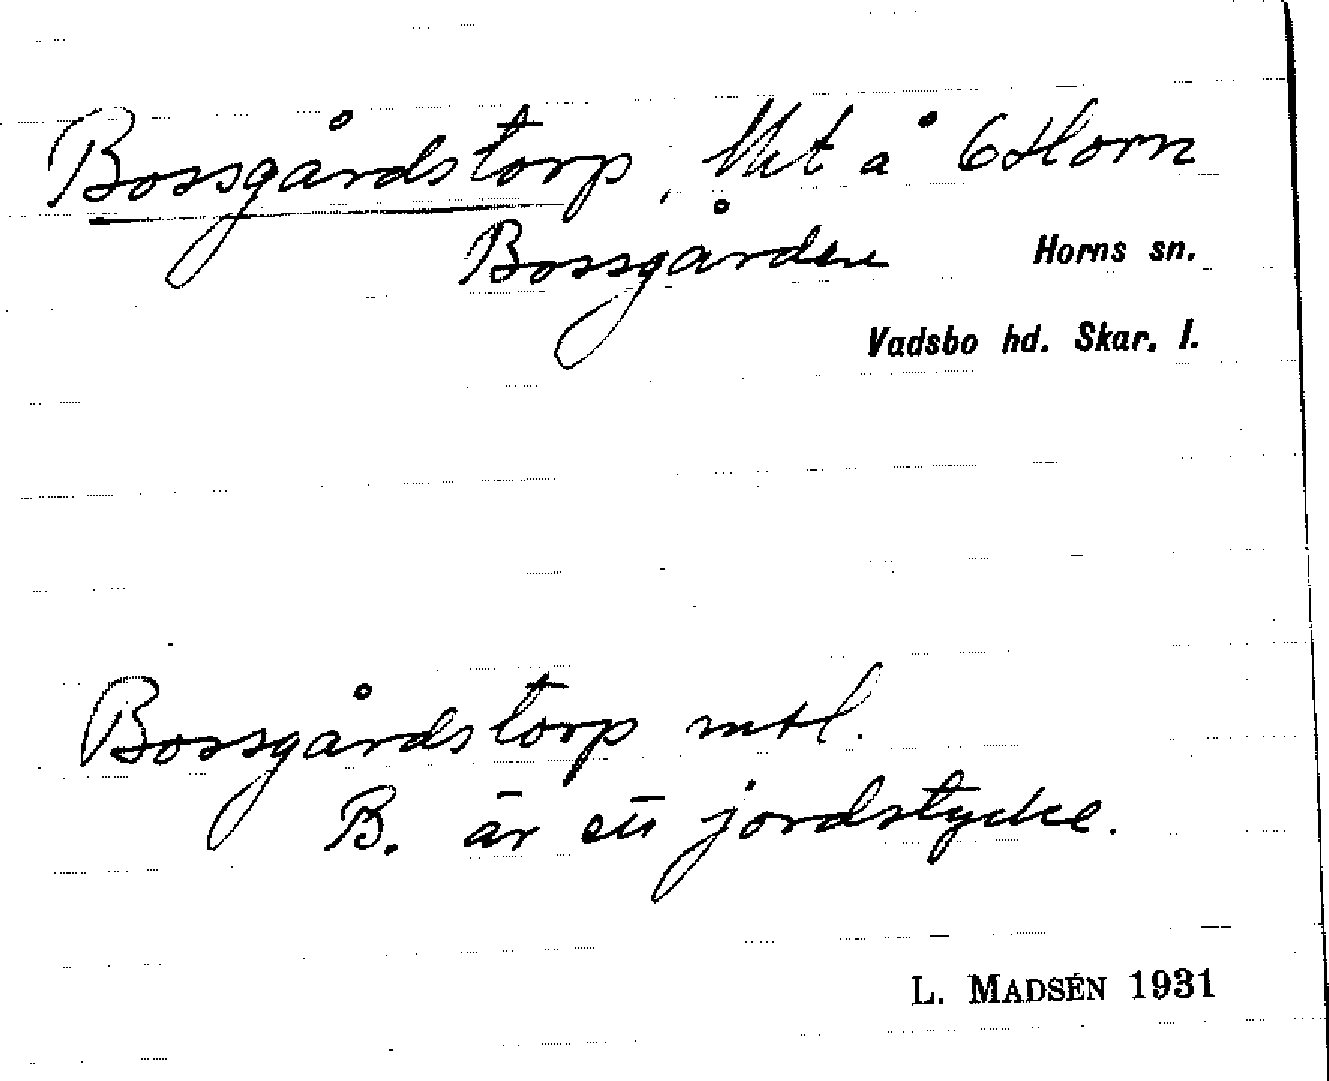 Bossgårdstorp, Ut å 6 Horn
Bossgården
Horns sn.
Vadsbo hd. Skar. l.
Bossgårdstorp mtl.
B. är ett jordstycke.
L. MADSÉN 1931